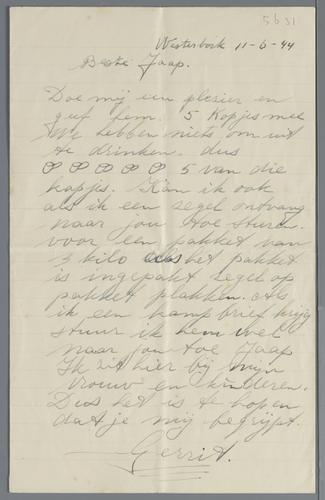 5631
Westerbork 11-6-44
Beste Jaap.
Doe mij een plesier en
geef fem. 5 Kopjes mee
We hebben niets om uit
te drinken. dus
5 van die
kopjes. Kan ik ook
als ik een zegel ontvang
naar jou toe sturen.
voor een pakket van
3 kilo als het pakket
is ingepakt zegel op
pakket plakken. Als
ik een kamp brief krijg
stuur ik hem wel
naar jou toe Jaap
Ik zit hier bij mijn
vrouw en kinderen.
Dus het is te hopen
dat je mij begrijpt.
Gerrit.